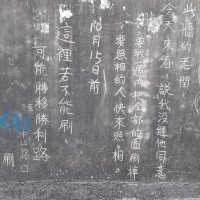 此牆的老闆
今天來看,說我沒經他同意
要我一週內把全部的圖刷掉
要照相的人快來照相。
10月15日前
這裡若不能刷
可能搬移勝利路
至中山路口
刷